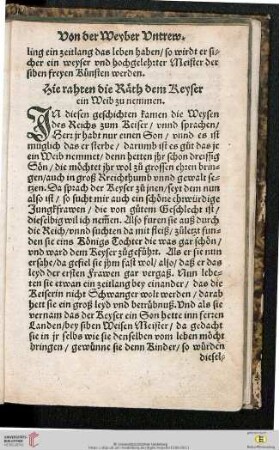 Von der Weyber Untrew.
ling ein zeitlang das leben haben/ so wirdt er si-
cher ein weyser vnd hochgelehrter Meister der
siben freyen Künsten werden.
Hie rahten die Räth dem Keyser
ein Weib zu nemmen.
IN disen geschichten kamen die Weysen
des Reichs zum Keiser/ vnnd sprachen/
Herr jr habt nur einen Son/ vnnd es ist
müglich das er sterbe/ darumb ist es güt das je
ein Weib nemmet/ denn hetten jhr schon dreissig
Sön/ die möchtet jhr wol zu grossen ehren brin-
gen/ auch in groß Rreichthumb vnnd gewalt se-
tzen. Da sprach der Keyser zu jnen/ seyt dem nun
also ist/ so sucht mir auch ein schöne ehrwürdige
Jungkfrawen/ die von gütem Geschlecht ist/
dieselbig wil ich neffen. Also furen sie auß durch
die Reich/ vnnd suchten da mit fleiß/ zületzt fun-
den sie eins Königs Tochter die was gar schön/
vnd ward dem Keyser zügeführt. Als er sie nun
ersahe/ da gefiel sie jhm fast wol/ also/ daß er das
leyd der ersten Frawen gar vergaß. Nun lebe-
ten sie etwan ein zeitlang bey einander/ das die
Keiserin nicht Schwanger wolt werden/ darab
hett sie ein groß leyd vnd betrübnuß. Vnd als sie
vernam das der Keyser ein Son hette inn ferren
Landen/ bey siben Weisen Meister/ da gedacht
sie in jr selbs wie sie denselben vom leben möcht
bringen/ gewünne sie denn Kinder/ so würden
diesel-